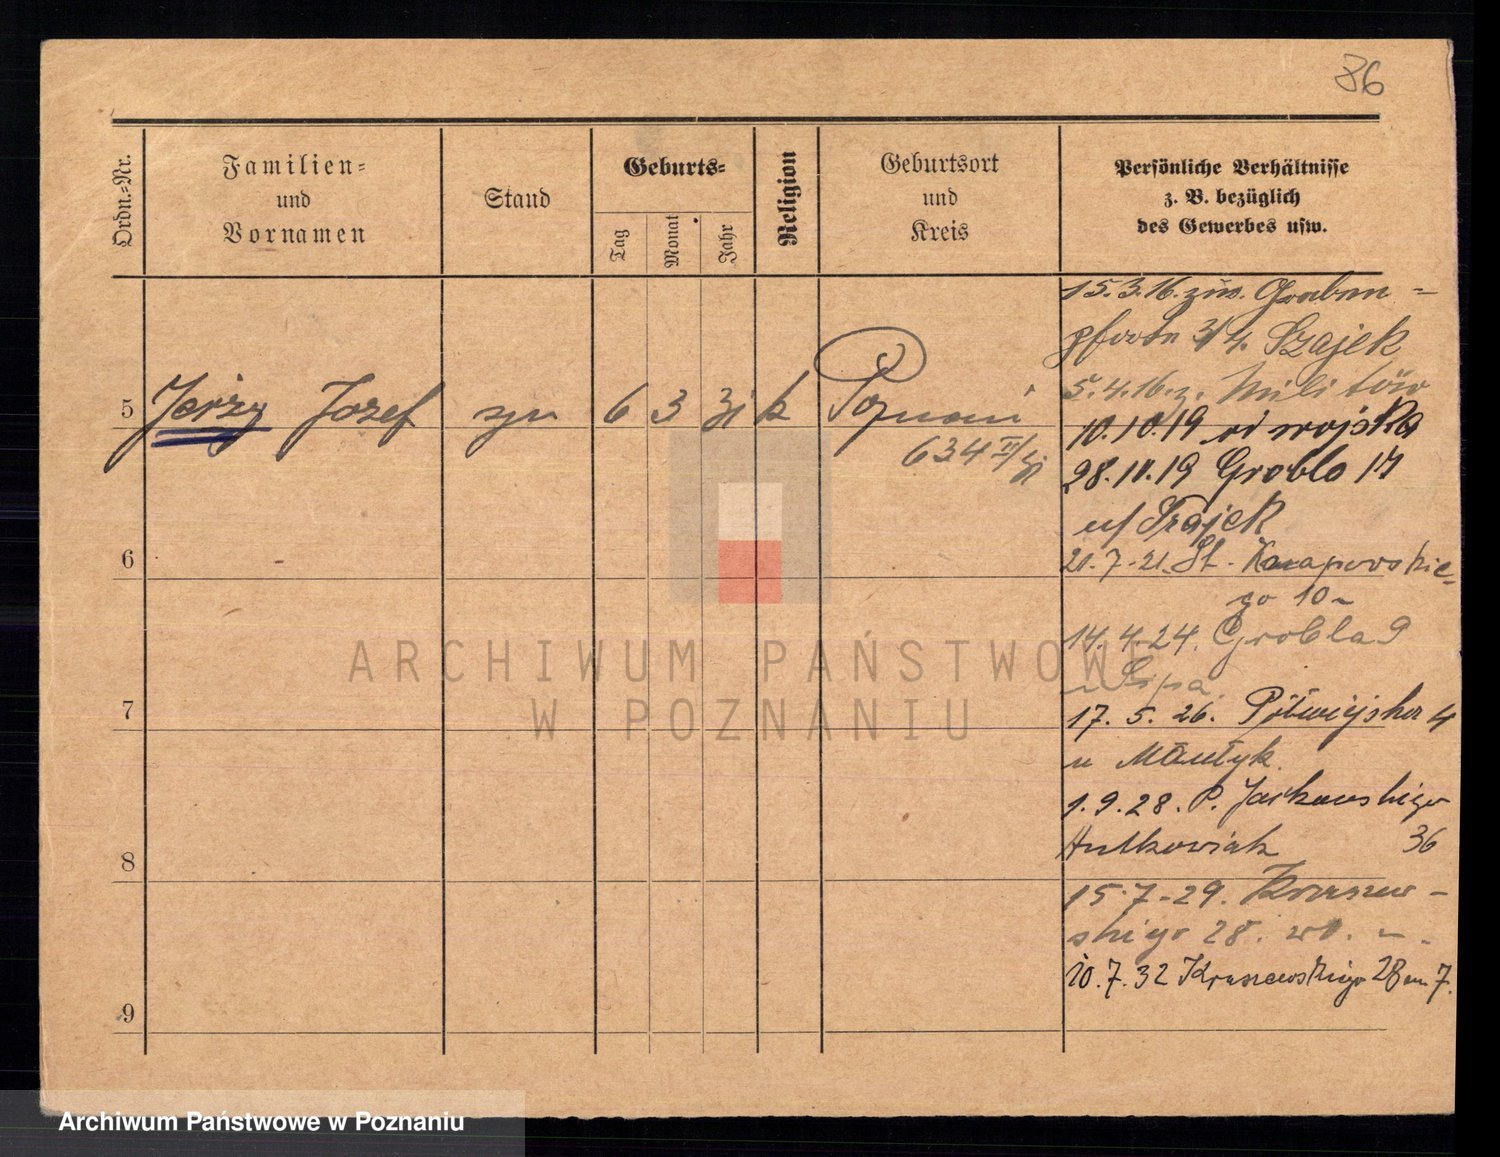 86
Ordn.-Nr.
Familien-
und
Vornamen
Stand
Geburts-
Tag
Monat
Jahr
Religion
Geburtsort
und
Kreis
Persönliche Verhältnisse
z. B. bezüglich
des Gewerbes usw.
15.3.16. Graben-
3/4. Szajek
5 Jerzy Józef syn 6 3 31 k Poznań
5.4.16. z. Militär
634
10.10.19 od wojska
28.11.19 Grobla 17
u/ Szajek
6
21.7.21. St. Knapowskie-
go 10
14.4.24. Grobla 9
7
17. 5. 26. Półwiejska 4
u
1.9.28. P. Jackowskiego
36
8
15.7-29. Kraszew-
skiego 28.
10.7.32 Kraszewskiego 28 m 7.
9
ARCHIWUM PAŃSTWOWE
W POZNANIU
Archiwum Państwowe w Poznaniu